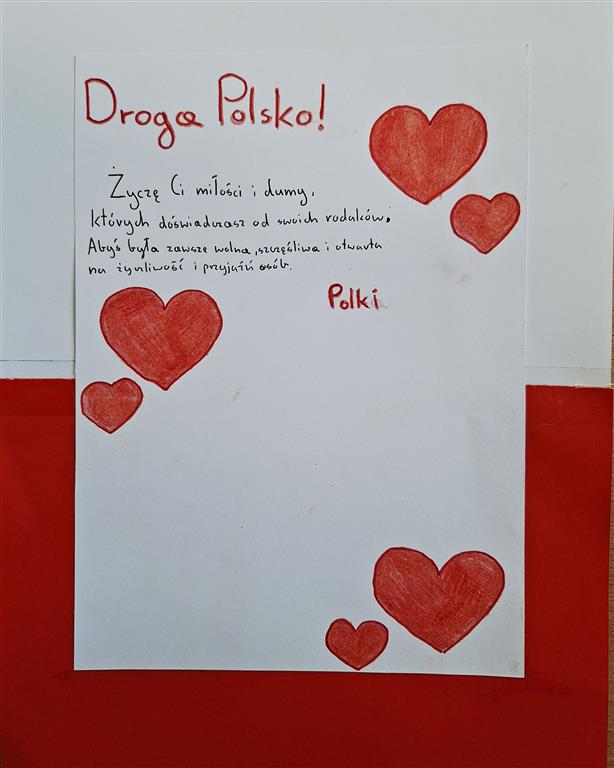 Droga Polsko!
Życzę Ci miłości i dumy,
których doświadczasz od swoich rodaków,
Abyś była zawsze wolna, szczęśliwa i otwarta
na życzliwość i przyjaźń osób.
Polki